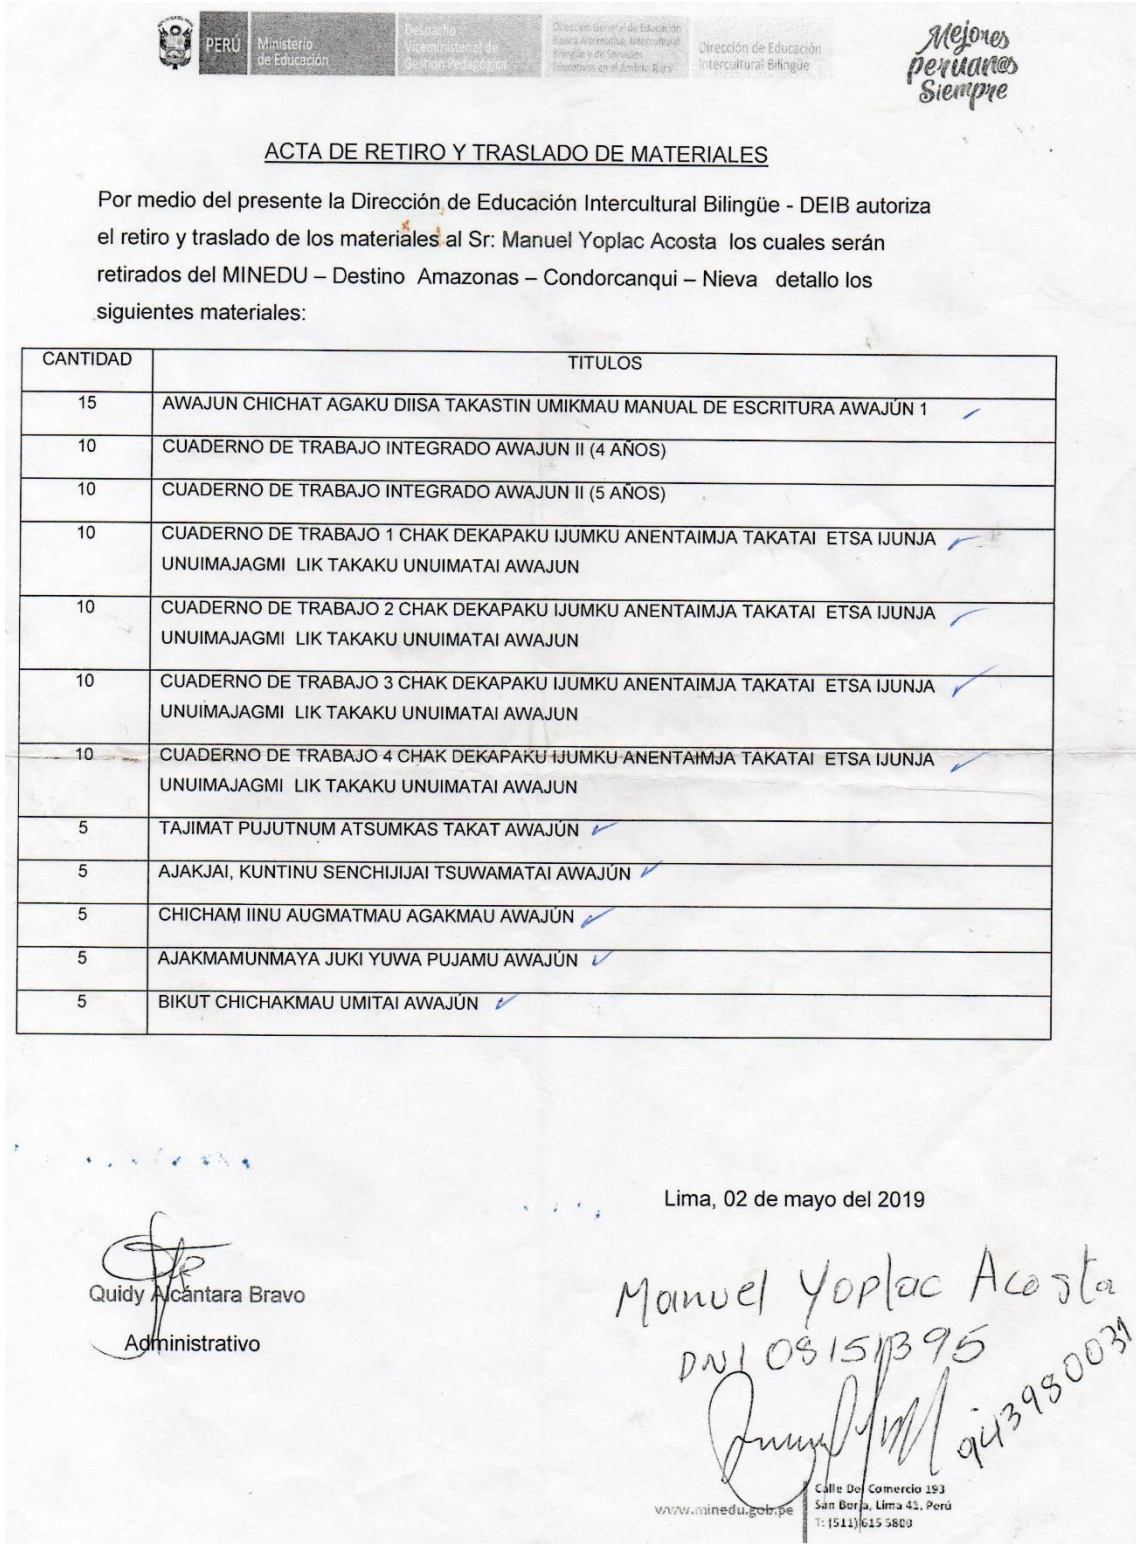 PERÚ
Ministerio
de Educación
Despacho
Viceministerial de
Gestión Pedagógica
Dirección General de Educación
Básica Alternativa, Intercultural
Bilingüe y de Servicios
Educativos en el Ámbito Rural
Dirección de Educación
Intercultural Bilingüe
Mejores
peruan@s
Siempre
ACTA DE RETIRO Y TRASLADO DE MATERIALES
Por medio del presente la Dirección de Educación Intercultural Bilingüe - DEIB autoriza
el retiro y traslado de los materiales al Sr: Manuel Yoplac Acosta los cuales serán
retirados del MINEDU – Destino Amazonas – Condorcanqui – Nieva detallo los
siguientes materiales:
CANTIDAD TITULOS
15 AWAJUN CHICHAT AGAKU DIISA TAKASTIN UMIKMAU MANUAL DE ESCRITURA AWAJÚN 1
10 CUADERNO DE TRABAJO INTEGRADO AWAJUN II (4 AÑOS)
10 CUADERNO DE TRABAJO INTEGRADO AWAJUN II (5 AÑOS)
10 CUADERNO DE TRABAJO 1 CHAK DEKAPAKU IJUMKU ANENTAIMJA TAKATAI ETSA IJUNJA
UNUIMAJAGMI LIK TAKAKU UNUIMATAI AWAJUN
10 CUADERNO DE TRABAJO 2 CHAK DEKAPAKU IJUMKU ANENTAIMJA TAKATAI ETSA IJUNJA
UNUIMAJAGMI LIK TAKAKU UNUIMATAI AWAJUN
10 CUADERNO DE TRABAJO 3 CHAK DEKAPAKU IJUMKU ANENTAIMJA TAKATAI ETSA IJUNJA
UNUIMAJAGMI LIK TAKAKU UNUIMATAI AWAJUN
10 CUADERNO DE TRABAJO 4 CHAK DEKAPAKU IJUMKU ANENTAIMJA TAKATAI ETSA IJUNJA
UNUIMAJAGMI LIK TAKAKU UNUIMATAI AWAJUN
5 TAJIMAT PUJUTNUM ATSUMKAS TAKAT AWAJÚN
5 AJAKJAI, KUNTINU SENCHIJIJAI TSUWAMATAI AWAJÚN
5 CHICHAM IINU AUGMATMAU AGAKMAU AWAJÚN
5 AJAKMAMUNMAYA JUKI YUWA PUJAMU AWAJÚN
5 BIKUT CHICHAKMAU UMITAI AWAJÚN
Lima, 02 de mayo del 2019
Quidy Alcántara Bravo
Administrativo
Manuel Yoplac Acosta
DNI 08151395
943980031
www.minedu.gob.pe
Calle Del Comercio 193
San Borja, Lima 41, Perú
T: (511) 615 5800